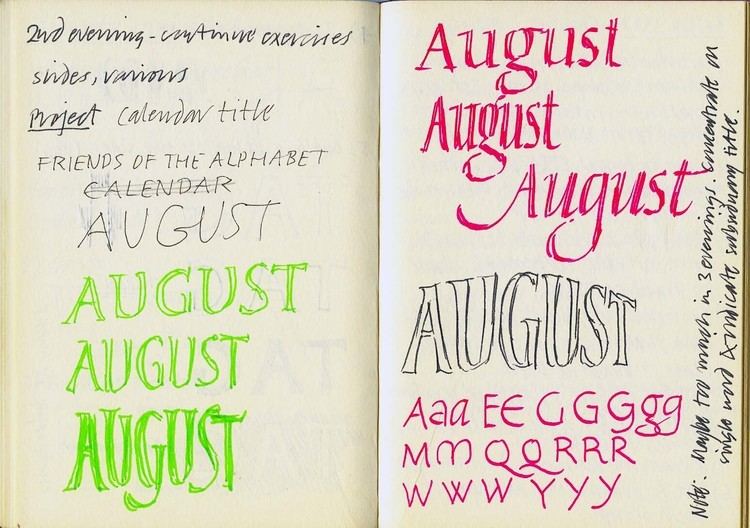 2nd evening - continue exercises
slides, various
Project Calendar title
FRIENDS OF THE ALPHABET
CALENDAR
AUGUST
AUGUST
AUGUST
AUGUST
August
August
August
AUGUST
Aaa EE G G G g g
M M Q Q R R R
W W W Y y y
Note: Maybe too much in 3 evenings. Concentrate on
single word & indicate subsiduary title.